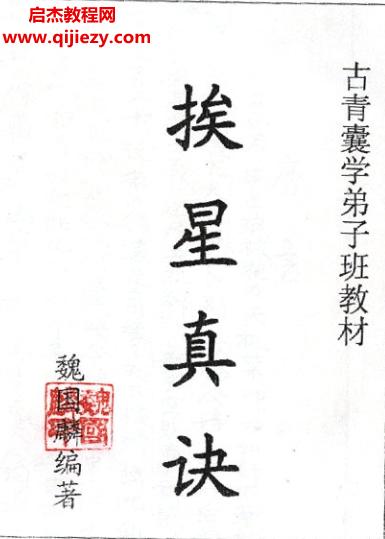 启杰教程网
www.qijiezy.com
古青囊学弟子班教材
挨星真诀
魏国麟编著